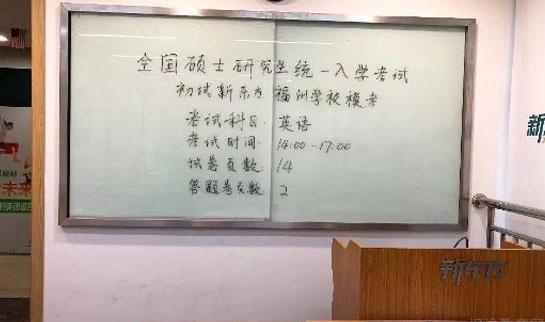 全国硕士研究生统一入学考试
初试新东方福州学校模考
考试科目：英语
考试时间：14:00-17:00
试卷页数：14
答题卷页数 2
新东方
新
未来